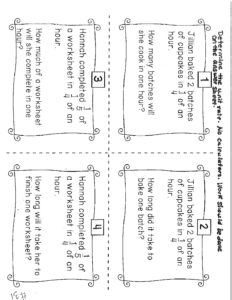 Determine the unit rate. No calculators. Work should be done
on the answer
1
Jillian baked 2 batches
of cupcakes in 1/3 of an
hour.
How many batches will
she cook in one hour?
2
Jillian baked 2 batches
of cupcakes in 1/3 of an
hour.
How long did it take to
bake one batch?
3
Hannah completed 1/5 of
a worksheet in 1/4 of an
hour.
How much of a worksheet
will she complete in one
hour?
4
Hannah completed 1/5 of
a worksheet in 1/4 of an
hour.
How long will it take her to
finish one worksheet?